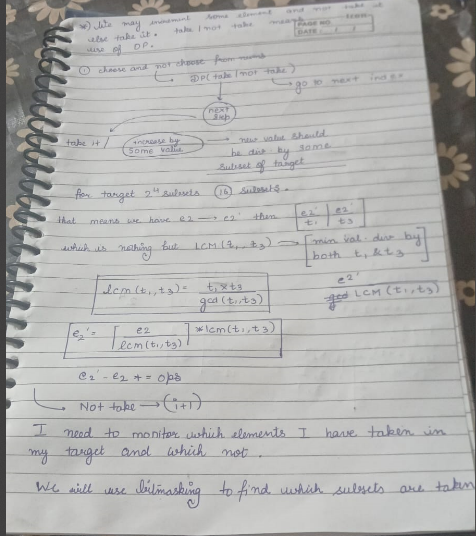 We may increment some element and not take it
else take it. take / not take means
use of DP.
PAGE NO.
DATE: / /
① choose and not choose from nums
DP (take / not take)
go to next index
next step
take it / increase by some value → new value should
be div by some
subset of target
for target 2⁴ subsets (16) subsets.
that means we have e2 → e2' then [e2'/t1 | e2'/t3]
which is nothing but LCM (t1, t3) → [min val. div by
both t1 & t3]
lcm (t1, t3) = t1 × t3 / gcd (t1, t3)
e2'
LCM (t1, t3)
e2' = ⌈e2 / lcm(t1, t3)⌉ * lcm (t1, t3)
e2' - e2 += ops
Not take → (i+1)
I need to monitor which elements I have taken in
my target and which not.
We will use bitmasking to find which subsets are taken